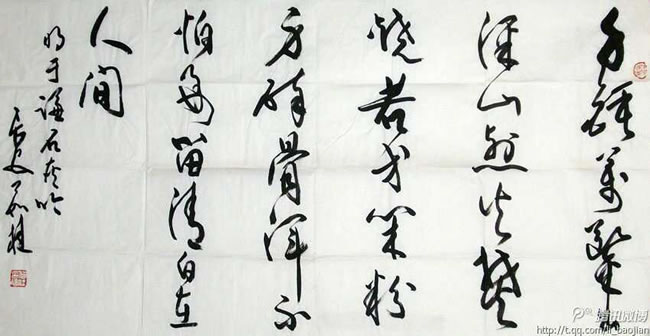 千锤萬擊出
深山烈火焚
燒若等闲粉
身碎骨渾不
怕要留清白在
人间
明于谦石灰吟
腾讯微博
http://t.qq.com/li_baojian